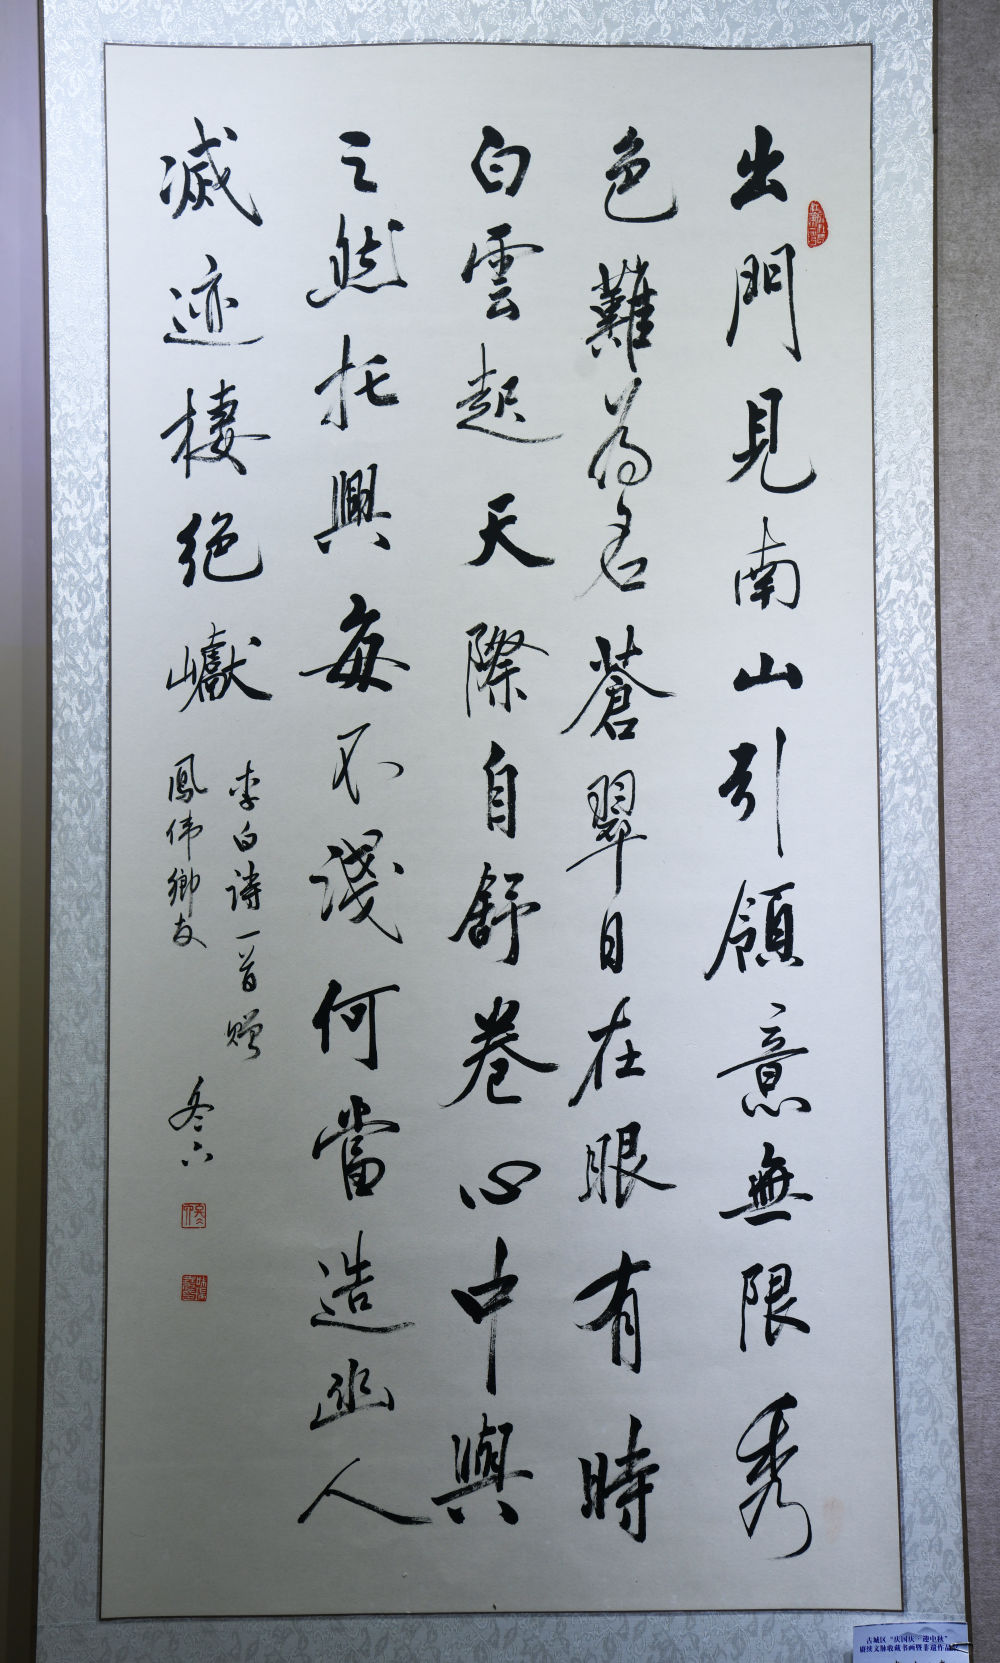 出門見南山引領意無限秀
色難為名蒼翠日在眼有時
白雲起天際自舒卷心中與
之然托興每不淺何當造幽人
滅迹棲絕巘
李白詩一首贈
鳳伟鄉友
冬六
古城区“庆国庆 迎中秋”
赓续文脉收藏书画暨非遗作品展